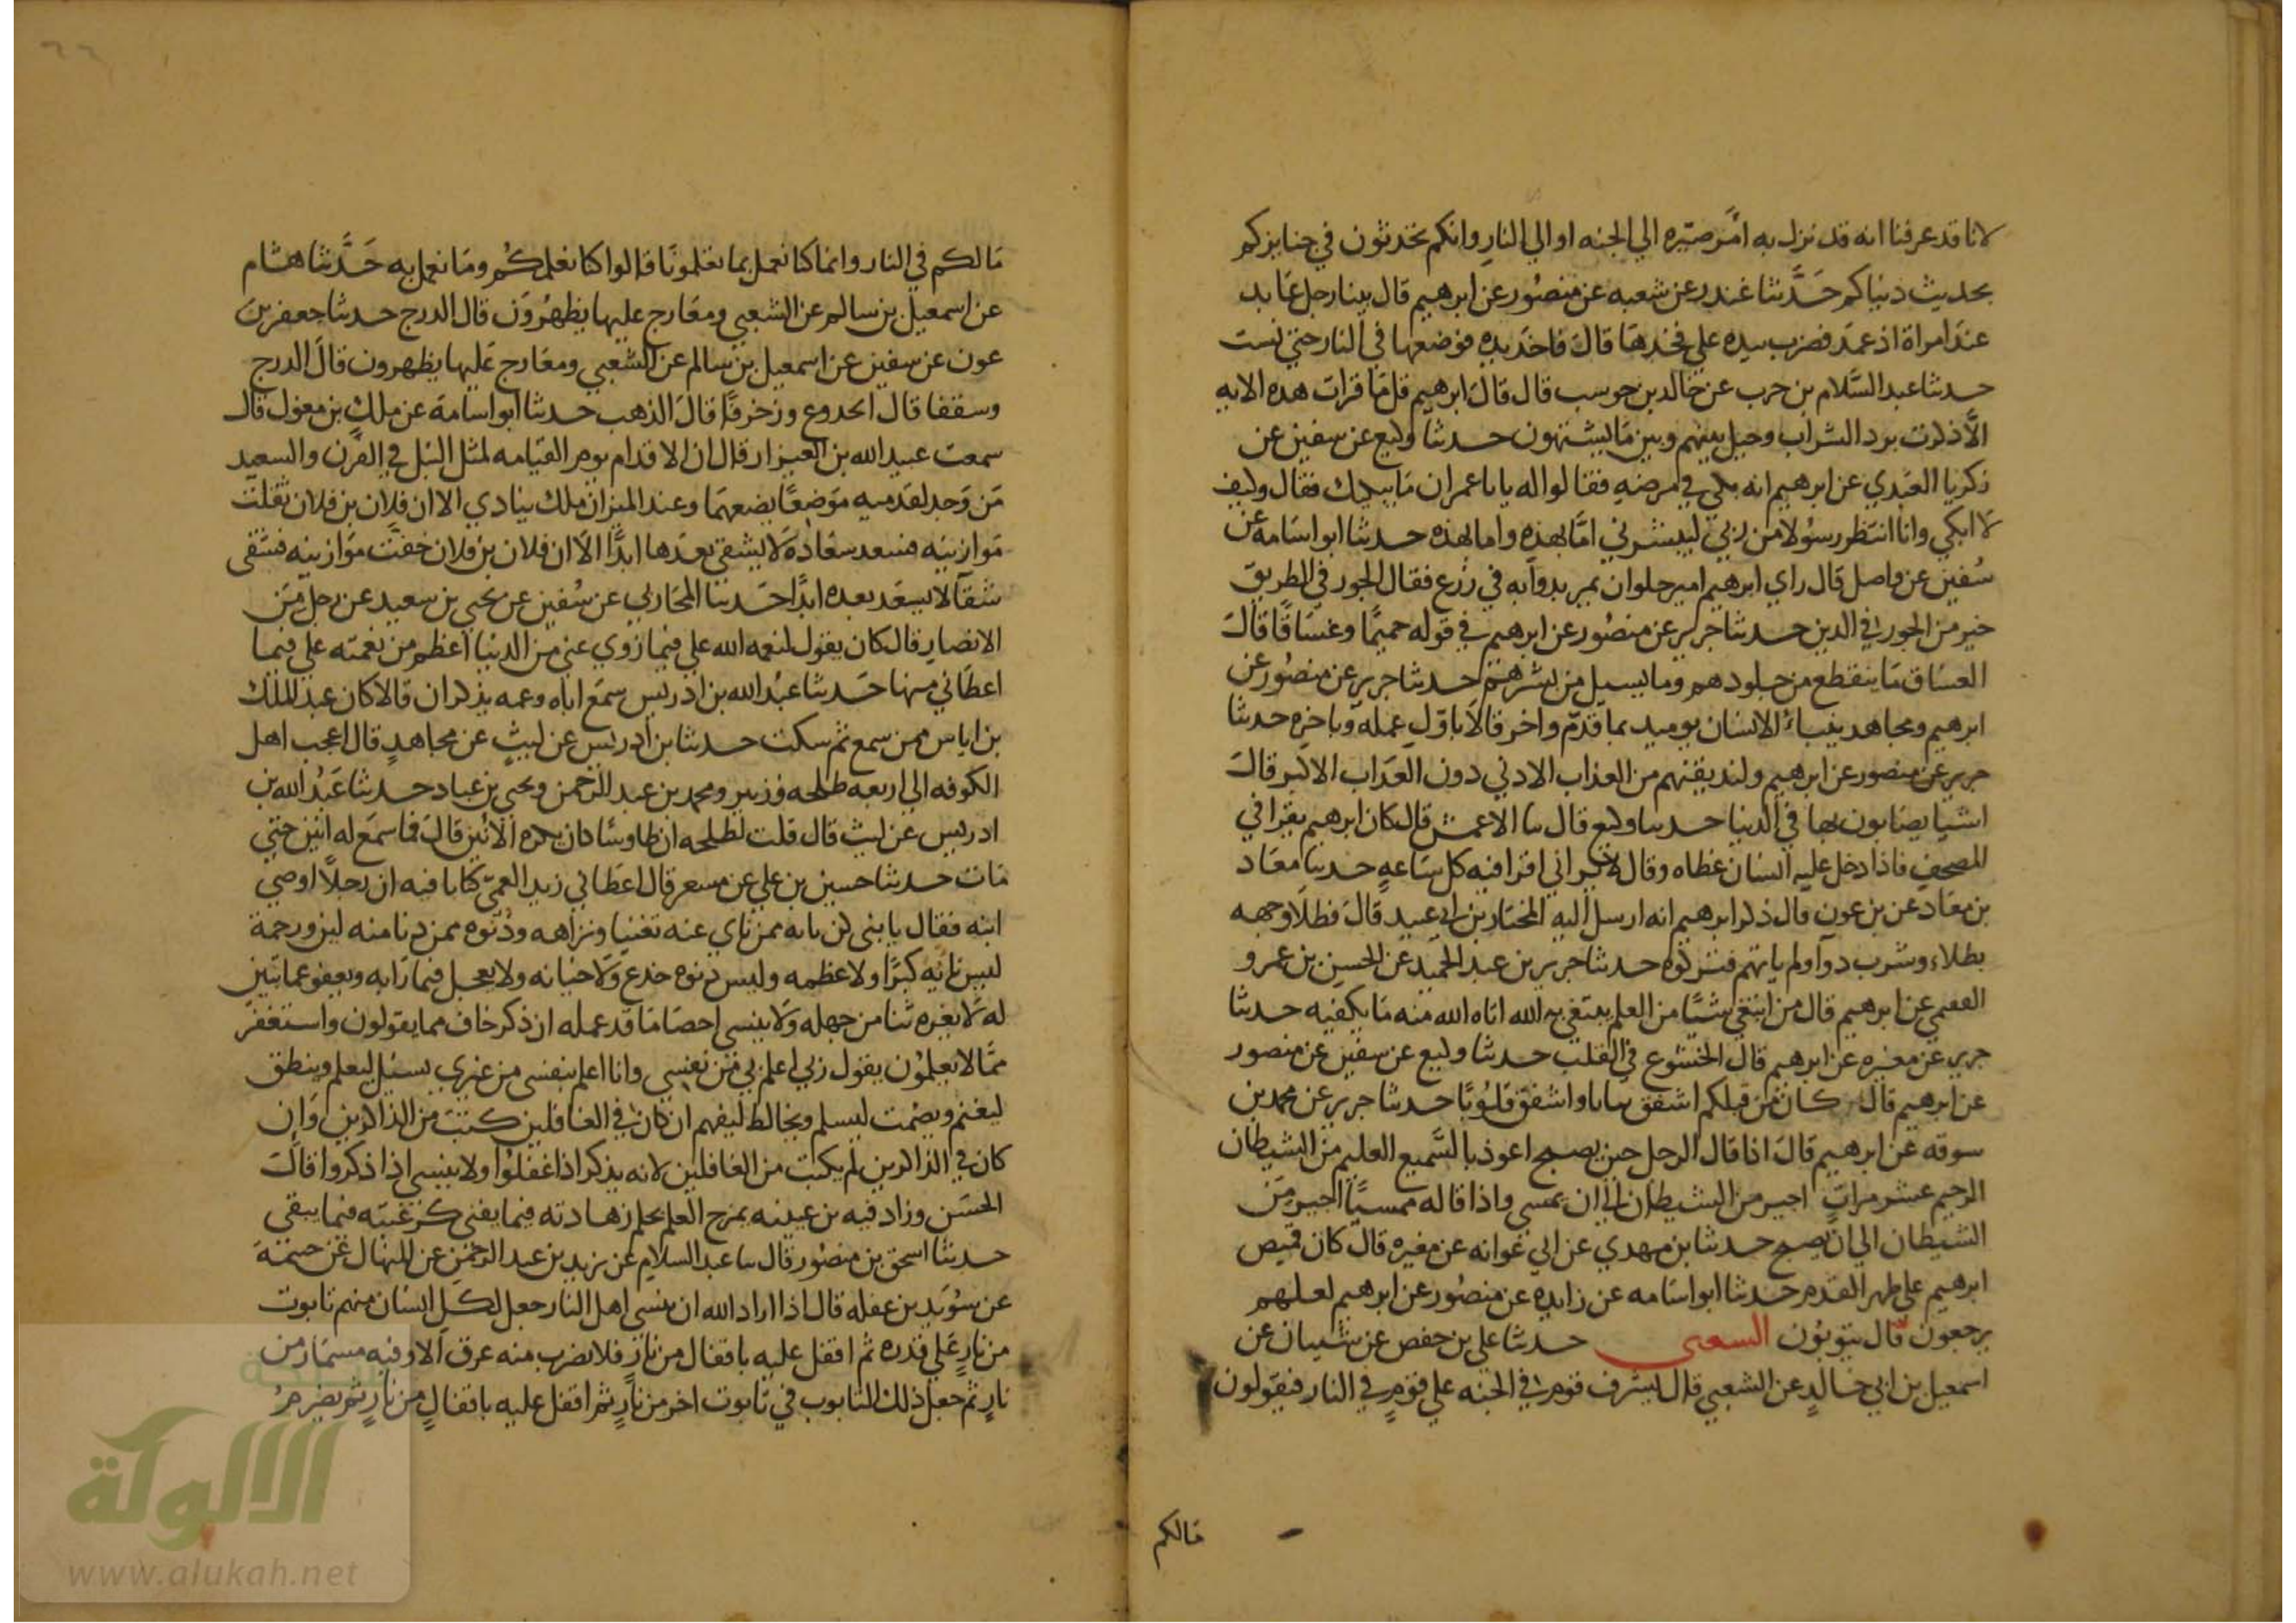 لانا قد عرفنا انه قد نزل به امر صيره الي الجنه او الي النار وانكم تحدثون في جنايزكم
بحديث دنياكم حدثنا غندر عن شعبه عن منصور عن ابرهيم قال بينا رجل عابد
عند امراة اذ عمد فضرب بيده علي فخدها قال فاخذ يده فوضعها في النار حتي نست
حدثنا عبد السلام بن حرب عن خالد بن حوسب قال قال ابرهيم قل ما قرات هده الايه
الا ذكرت برد الشراب وحيل بينهم وبين ما يشتهون حدثنا وكيع عن سفين عن
زكريا العبدي عن ابرهيم انه بكي في مرضه فقالوا له يابا عمران ما يبكيك فقال وكيف
لا ابكي وانا انتظر رسولا من ربي ليبشرني اما بهذه واما بهذه حدثنا ابو اسامه عن
سفين عن واصل قال راي ابرهيم امير حلوان يمر بدوابه في زرع فقال الجور في الطريق
خير من الجور في الدين حدثنا جرير عن منصور عن ابرهيم في قوله حميما وغساقا قال
الغساق ما ينقطع من جلودهم وما يسيل من بشرهم حدثنا جرير عن منصور عن
ابرهيم ومجاهد ينباء الانسان يوميد بما قدم واخر قالا باول عمله وباخره حدثنا
جرير عن منصور عن ابرهيم ولنديقنهم من العذاب الادني دون العذاب الاكبر قال
اشيا يصابون بها في الدنيا حدثنا وكيع قال ثنا الاعمش قال كان ابرهيم يقرا في
المصحف فاذا دخل عليه انسان غطاه وقال لا يراني اقرا فيه كل ساعه حدثنا معاد
بن معاد عن بن عون قال ذكر ابرهيم انه ارسل اليه المختار بن ابي عبيد قال فطلا وجهه
بطلاء وشرب دوا ولم ياتهم فتركوه حدثنا جرير بن عبد الحميد عن الحسن بن عمرو
الفقمي عن ابرهيم قال من ابتغي شيا من العلم يبتغي به الله اتاه الله منه ما يكفيه حدثنا
جرير عن مغيره عن ابرهيم قال الخشوع في القلب حدثنا وكيع عن سفين عن منصور
عن ابرهيم قال كان من قبلكم اشفق ثيابا واشفق قلوبا حدثنا جرير عن محمد بن
سوقه عن ابرهيم قال اذا قال الرجل حين يصبح اعوذ بالسميع العليم من الشيطان
الرجيم عشر مرات اجير من الشيطان الي ان يمسي واذا قاله ممسيا اجير من
الشيطان الي ان يصبح حدثنا بن مهدي عن ابي عوانه عن مغيره قال كان قميص
ابرهيم علي ظهر القدم حدثنا ابو اسامه عن زايده عن منصور عن ابرهيم لعلهم
يرجعون قال يتوبون الشعبي حدثنا علي بن حفص عن شيبان عن
اسمعيل بن ابي خالد عن الشعبي قال يشرف قوم في الجنه علي قوم في النار فيقولون
مالكم
مالكم في النار وانما كنا نعمل بما تعلمونا قالوا كنا نعلمكم وما نعمل به حدثنا هشام
عن اسمعيل بن سالم عن الشعبي ومعارج عليها يظهرون قال الدرج حدثنا جعفر بن
عون عن سفين عن اسمعيل بن سالم عن الشعبي ومعارج عليها يظهرون قال الدرج
وسقفا قال الجدوع وزخرفا قال الذهب حدثنا ابو اسامة عن ملك بن مغول قال
سمعت عبيد الله بن العيزار قال ان الاقدام يوم القيامه لمثل النبل في القرن والسعيد
من وجد لقدميه موضعا يضعهما وعند الميزان ملك ينادي الا ان فلان بن فلان ثقلت
موازينه فسعد سعادة لا يشقي بعدها ابدا الا ان فلان بن فلان خفت موازينه فشقي
شقآ لا يسعد بعده ابدا حدثنا المحاربي عن سفين عن يحيي بن سعيد عن رجل من
الانصار قال كان يقول لنعمه الله علي فيما زوي عني من الدنيا اعظم من نعمته علي فيما
اعطاني منها حدثنا عبد الله بن ادريس سمع اباه وعمه يذكران قالا كان عبد الملك
بن اياس ممن سمع ثم سكت حدثنا بن ادريس عن ليث عن مجاهد قال اعجب اهل
الكوفه الي اربعه طلحه وزبير ومحمد بن عبد الرحمن ويحيي بن عباد حدثنا عبد الله بن
ادريس عن ليث قال قلت لطلحه ان طاوسا كان يكره الانين قال فما سمع له انين حتي
مات حدثنا حسين بن علي عن مسعر قال اعطاني زيد العمي كتابا فيه ان رجلا اوصي
ابنه فقال يا بني كن نايه ممن ناي عنه تغنيا ونزاهه ودنوه ممن دنا منه لين ورحمة
ليس نايه كبرا ولا عظمه وليس دنوه خدع ولا خيانه ولا يعجل فيما رابه ويعفو عما تبين
له لا يغره ثنا من جهله ولا ينسي احصا ما قد عمله ان ذكر خاف مما يقولون واستغفر
مما لا يعلمون يقول ربي اعلم بي من نفسي وانا اعلم بنفسي من غيري يسئل ليعلم وينطق
ليغنم ويصمت ليسلم ويخالط ليفهم ان كان في الغافلين كتب من الذاكرين وان
كان في الذاكرين لم يكتب من الغافلين لانه يذكر اذا غفلوا ولا ينسي اذا ذكروا قال
الحسن وزاد فيه بن عيينه يمزج العلم بحلم زهادته فيما يفني كرغبته فيما يبقي
حدثنا اسحق بن منصور قال ثنا عبد السلام عن يزيد بن عبد الرحمن عن المنهال عن خيثمة
عن سويد بن غفله قال اذا اراد الله ان ينسي اهل النار جعل لكل انسان منهم تابوت
من نار علي قدره ثم اقفل عليه باقفال من نار فلا يضرب منه عرق الا وفيه مسمار من
نار ثم جعل ذلك التابوب في تابوت اخر من نار ثم اقفل عليه باقفال من نار ثم يضرم
الألوكة
www.alukah.net